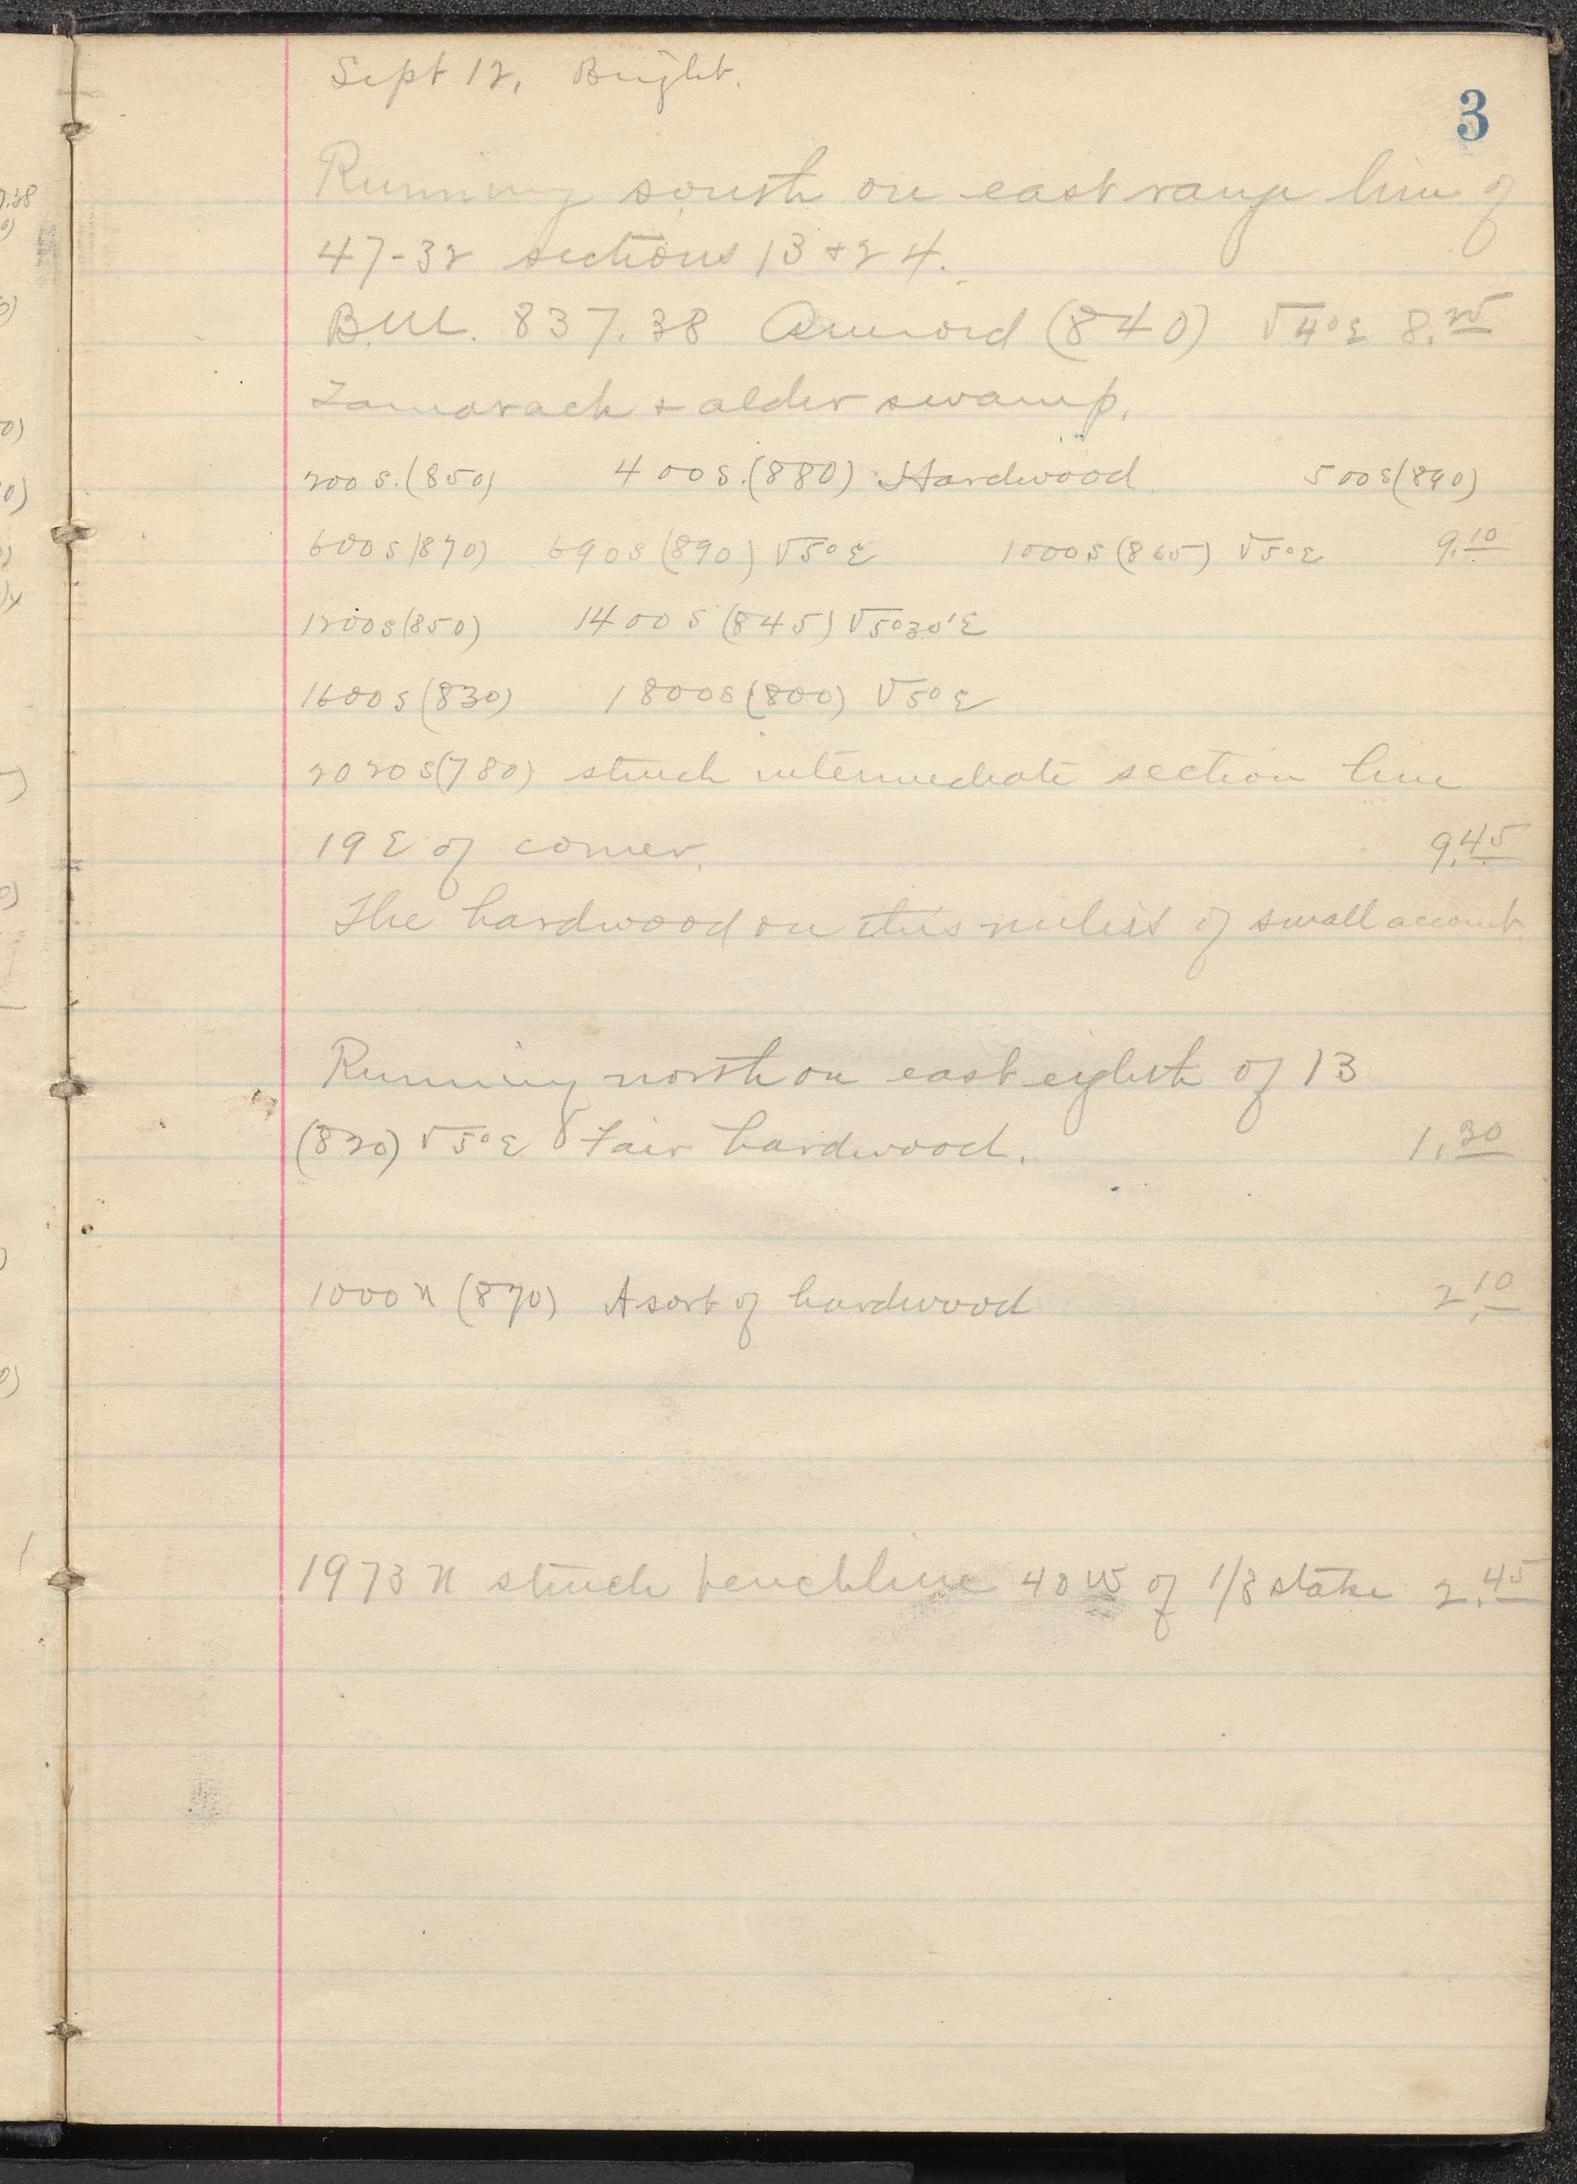 Sept 12, Bright.
3
Running south on east range line of
47-32 sections 13 + 24.
B.M. 837.38 Aneroid (840) V4°E 8.25
Tamarack + alder swamp.
200 S. (850) 400 S. (880) Hardwood 500 S (890)
600 S (870) 690 S (890) V5°E 1000 S (865) V5°E 9.10
1200 S (850) 1400 S (845) V5°30'E
1600 S (830) 1800 S (800) V5°E
2020 S (780) struck intermediate section line
19 E of corner. 9.45
The hardwood on this mile is of small account
Running north on east eighth of 13
(820) V5°E Fair hardwood. 1.30
1000 N (870) A sort of hardwood 2.10
1973 N struck benchline 40 W of 1/8 stake 2.45